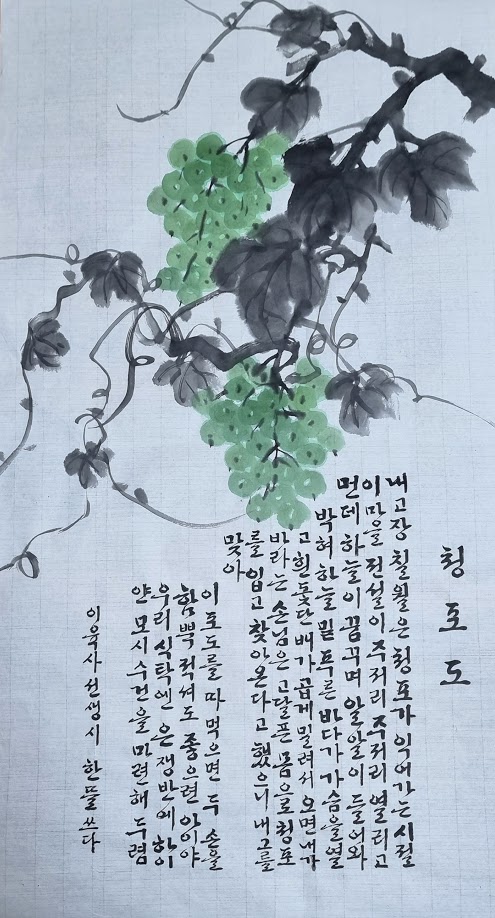 청포도
내고장 칠월은 청포가 익어가는 시절
이마을 전설이 주저리 주저리 열리고
먼데 하늘이 꿈꾸며 알알이 들어와
박혀 하늘 밑 푸른 바다가 가슴을 열
고 흰 돛단배가 곱게 밀려서 오면 내가
바라는 손님은 고달픈 몸으로 청포
를 입고 찾아온다고 했으니 내 그를
맞아
이 포도를 따 먹으면 두 손을
함뿍 적셔도 좋으련 아이야
우리 식탁엔 은쟁반에 하이
얀 모시 수건을 마련해 두렴
이육사 선생 시 한뜰 쓰다